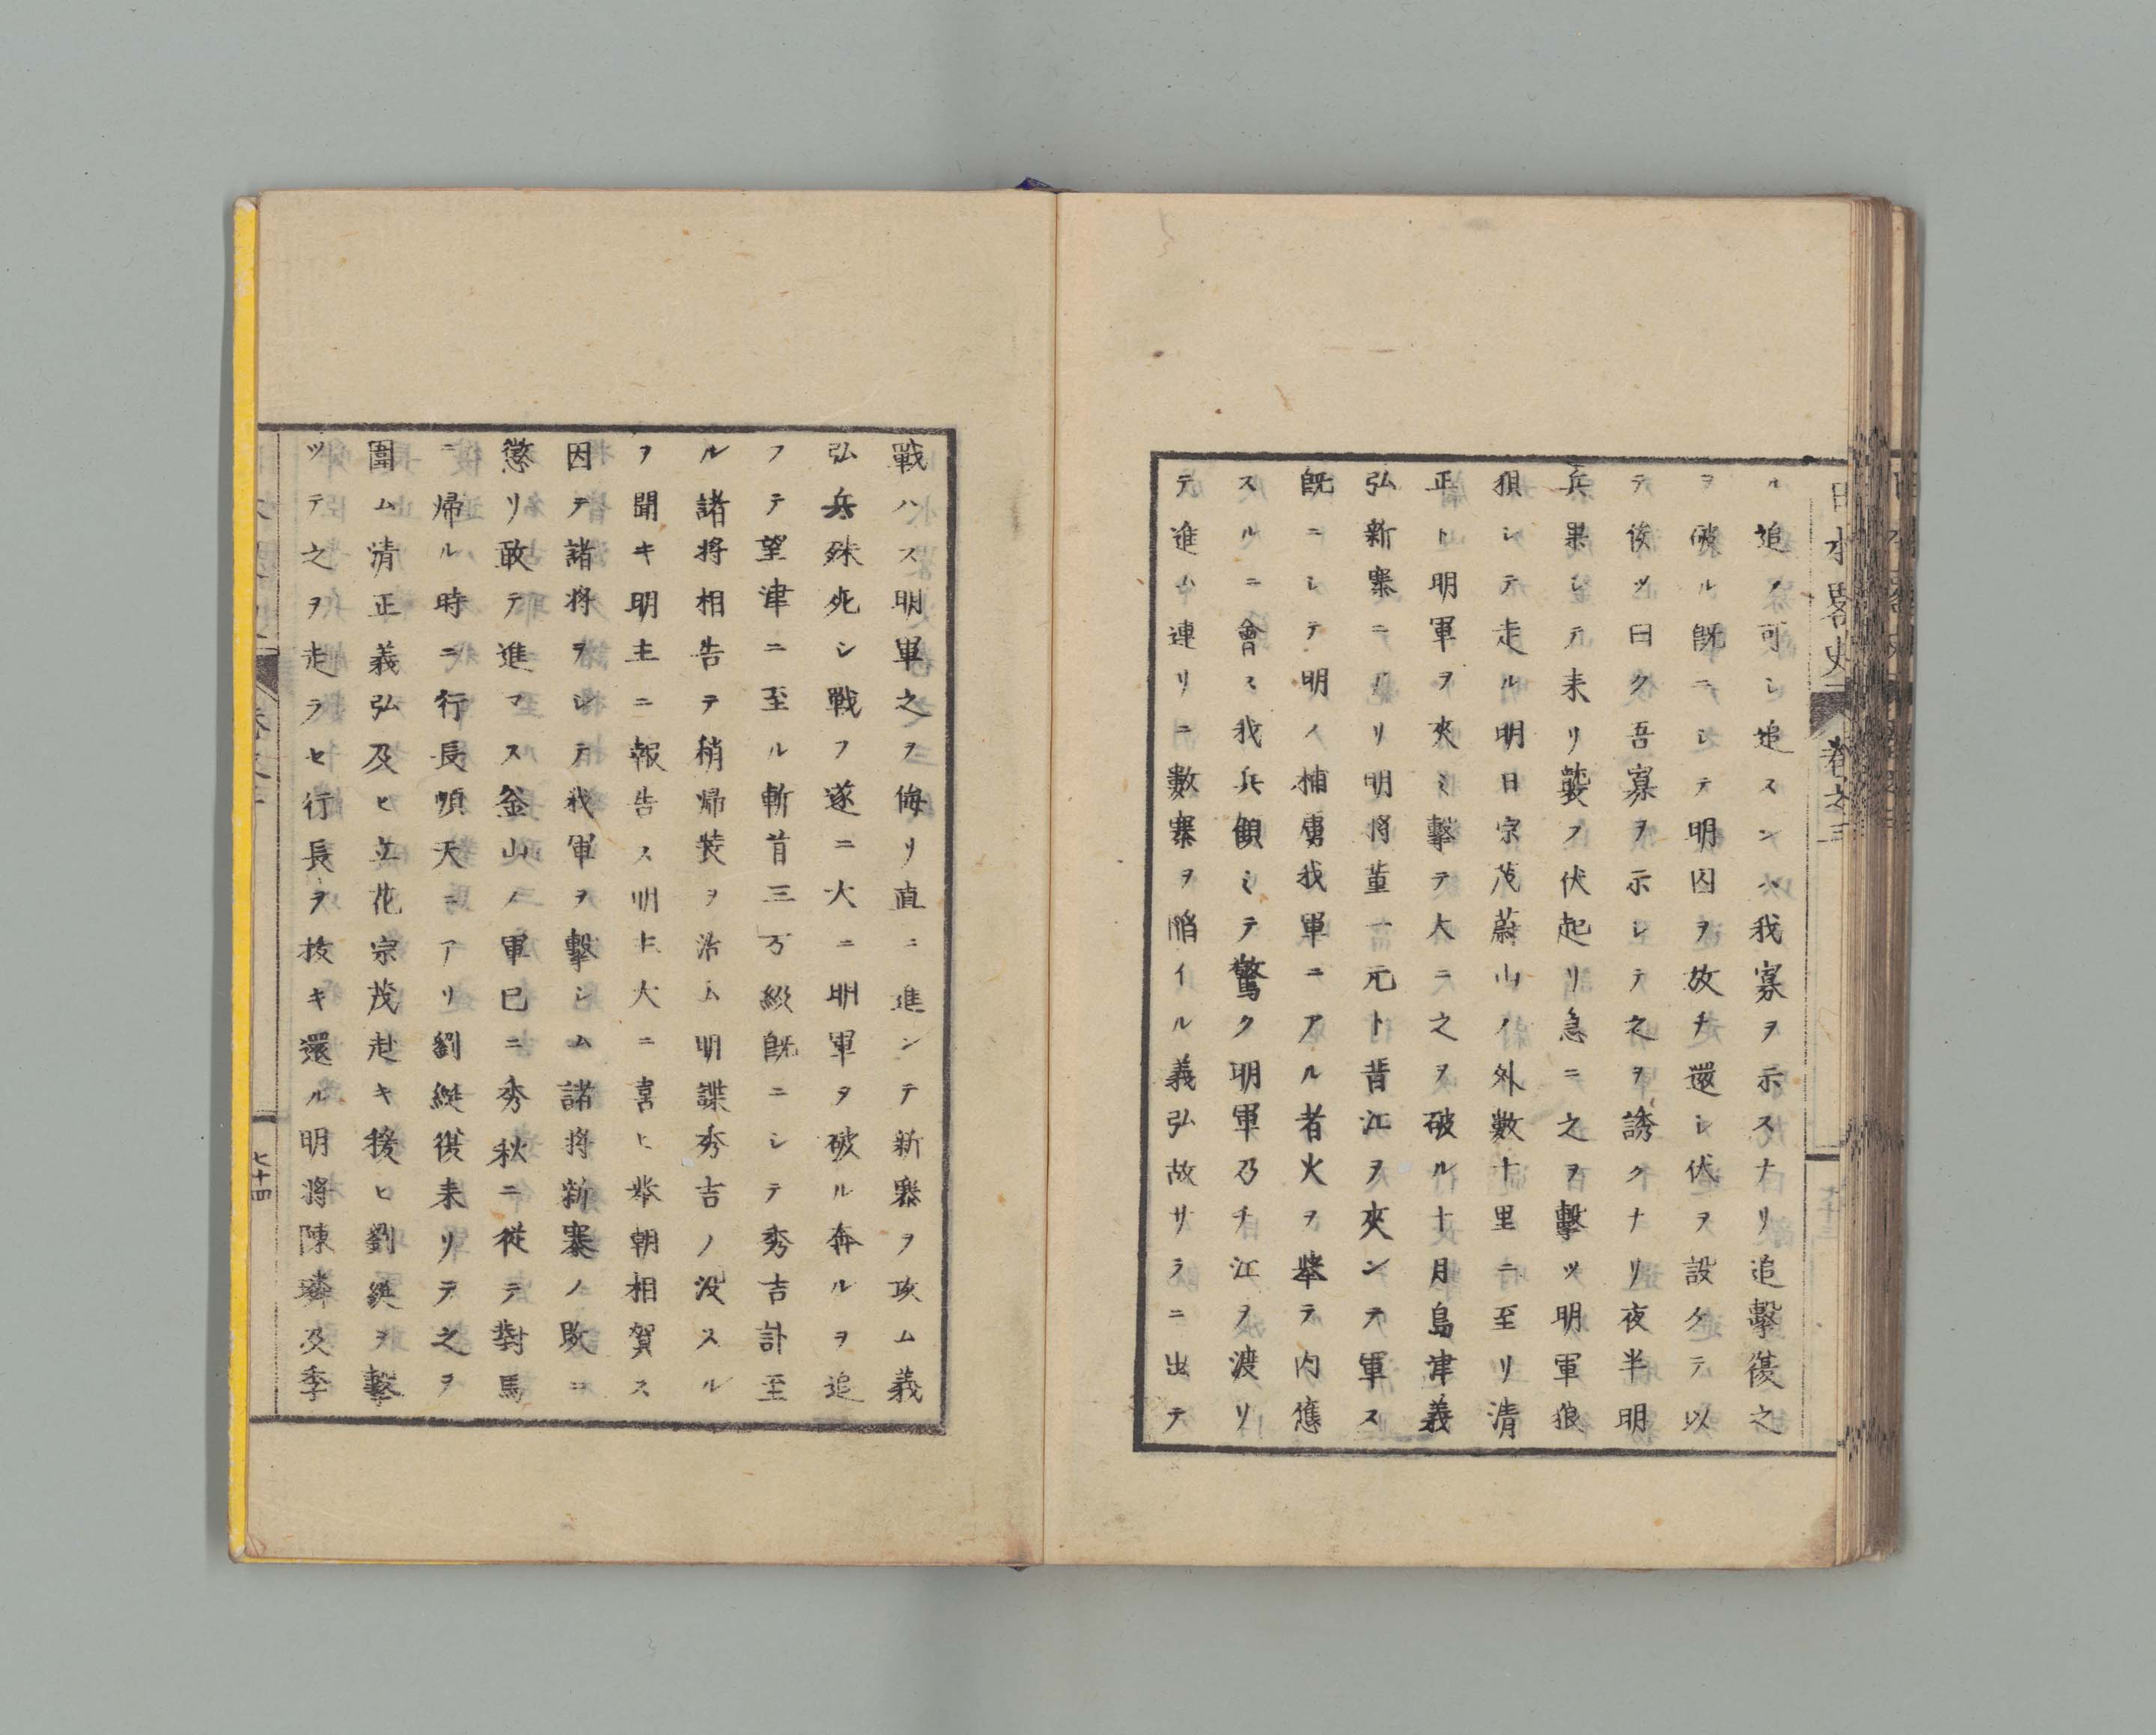 日本畧史 卷之三
ル追フ可シ追スンハ我寡ヲ示スナリ追擊復之
ヲ破ル既ニシテ明囚ヲ放チ還シ伏ヲ設ケテ以
テ俟ツ曰ク吾寡ヲ示シテ之ヲ誘クナリ夜半明
兵果シテ来リ襲フ伏起リ急ニ之ヲ擊ツ明軍狼
狽シテ走ル明日宗茂蔚山ノ外數十里ニ至リ清
正ト明軍ヲ夾ミ擊テ大ニ之ヲ破ル十月島津義
弘新寨ニアリ明將董一元ト晋江ヲ夾ンテ軍ス
既ニシテ明ノ捕虜我軍ニアル者火ヲ擧テ内應
スルニ會ス我兵顧ミテ驚ク明軍乃チ江ヲ渡リ
テ進ム連リニ數寨ヲ陷イル義弘故サラニ出テ
戰ハス明軍之ヲ侮リ直ニ進ンテ新寨ヲ攻ム義
弘兵殊死シ戰フ遂ニ大ニ明軍ヲ破ル奔ルヲ追
フテ望津ニ至ル斬首三万級既ニシテ秀吉訃至
ル諸将相告テ稍帰裝ヲ治ム明諜秀吉ノ没スル
ヲ聞キ明主ニ報告ス明主大ニ喜ヒ挙朝相賀ス
因テ諸將ヲシテ我軍ヲ擊シム諸将新寨ノ敗ニ
懲リ敢テ進マス釜山ノ軍已ニ秀秋ニ從テ對馬
ニ帰ル時ニ行長順天ニアリ劉綎復来リテ之ヲ
圍ム清正義弘及ヒ立花宗茂赴キ援ヒ劉綎ヲ擊
ツテ之ヲ走ラセ行長ヲ拔キ還ル明將陳璘及李
七十四